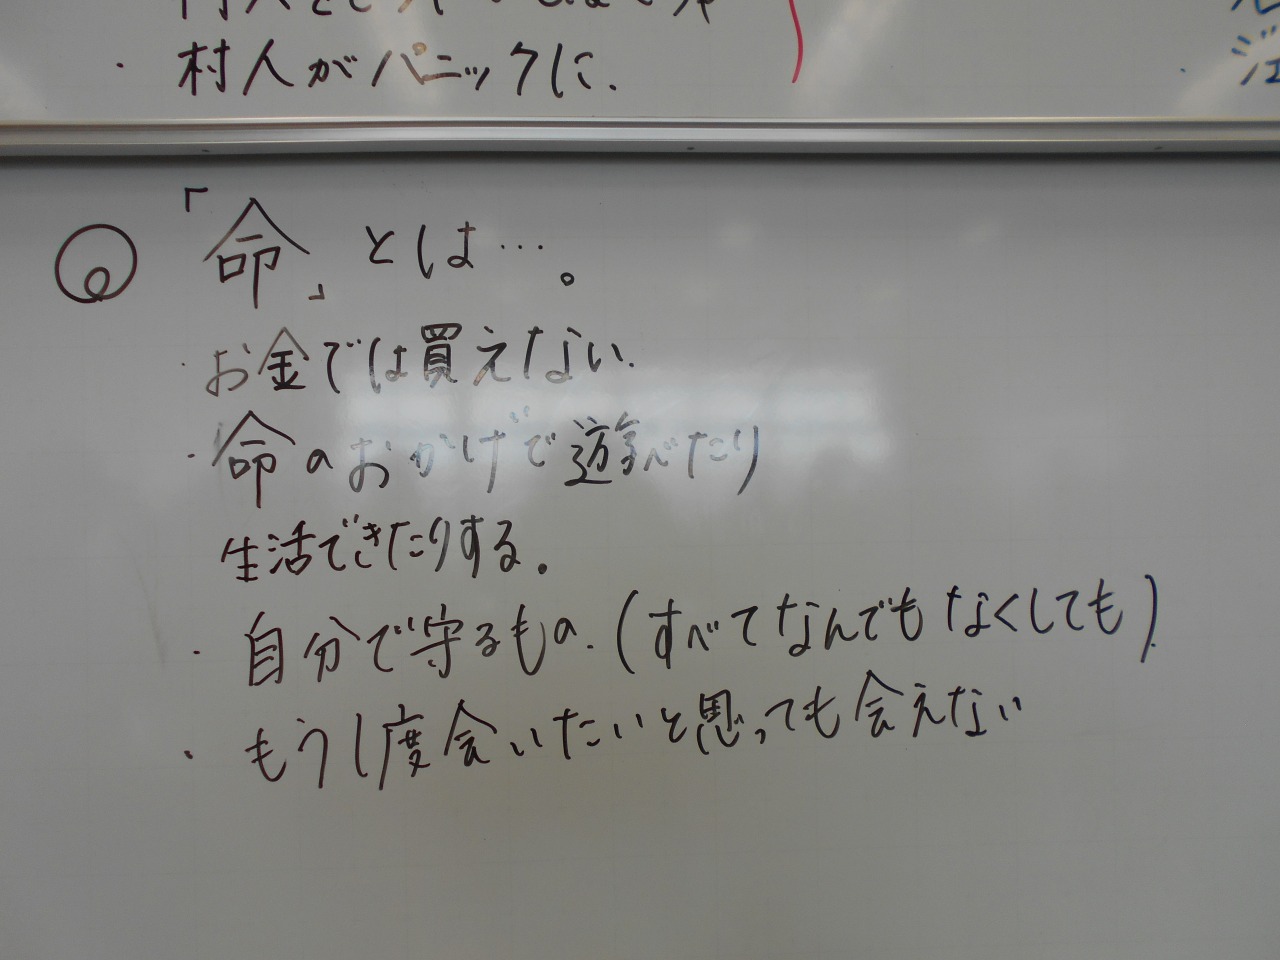 ・村人がパニックに.
Q 「命」とは…。
・お金では買えない.
・命のおかげで遊べたり
生活できたりする.
・自分で守るもの.(すべてなんでもなくしても)
・もう1度会いたいと思っても会えない